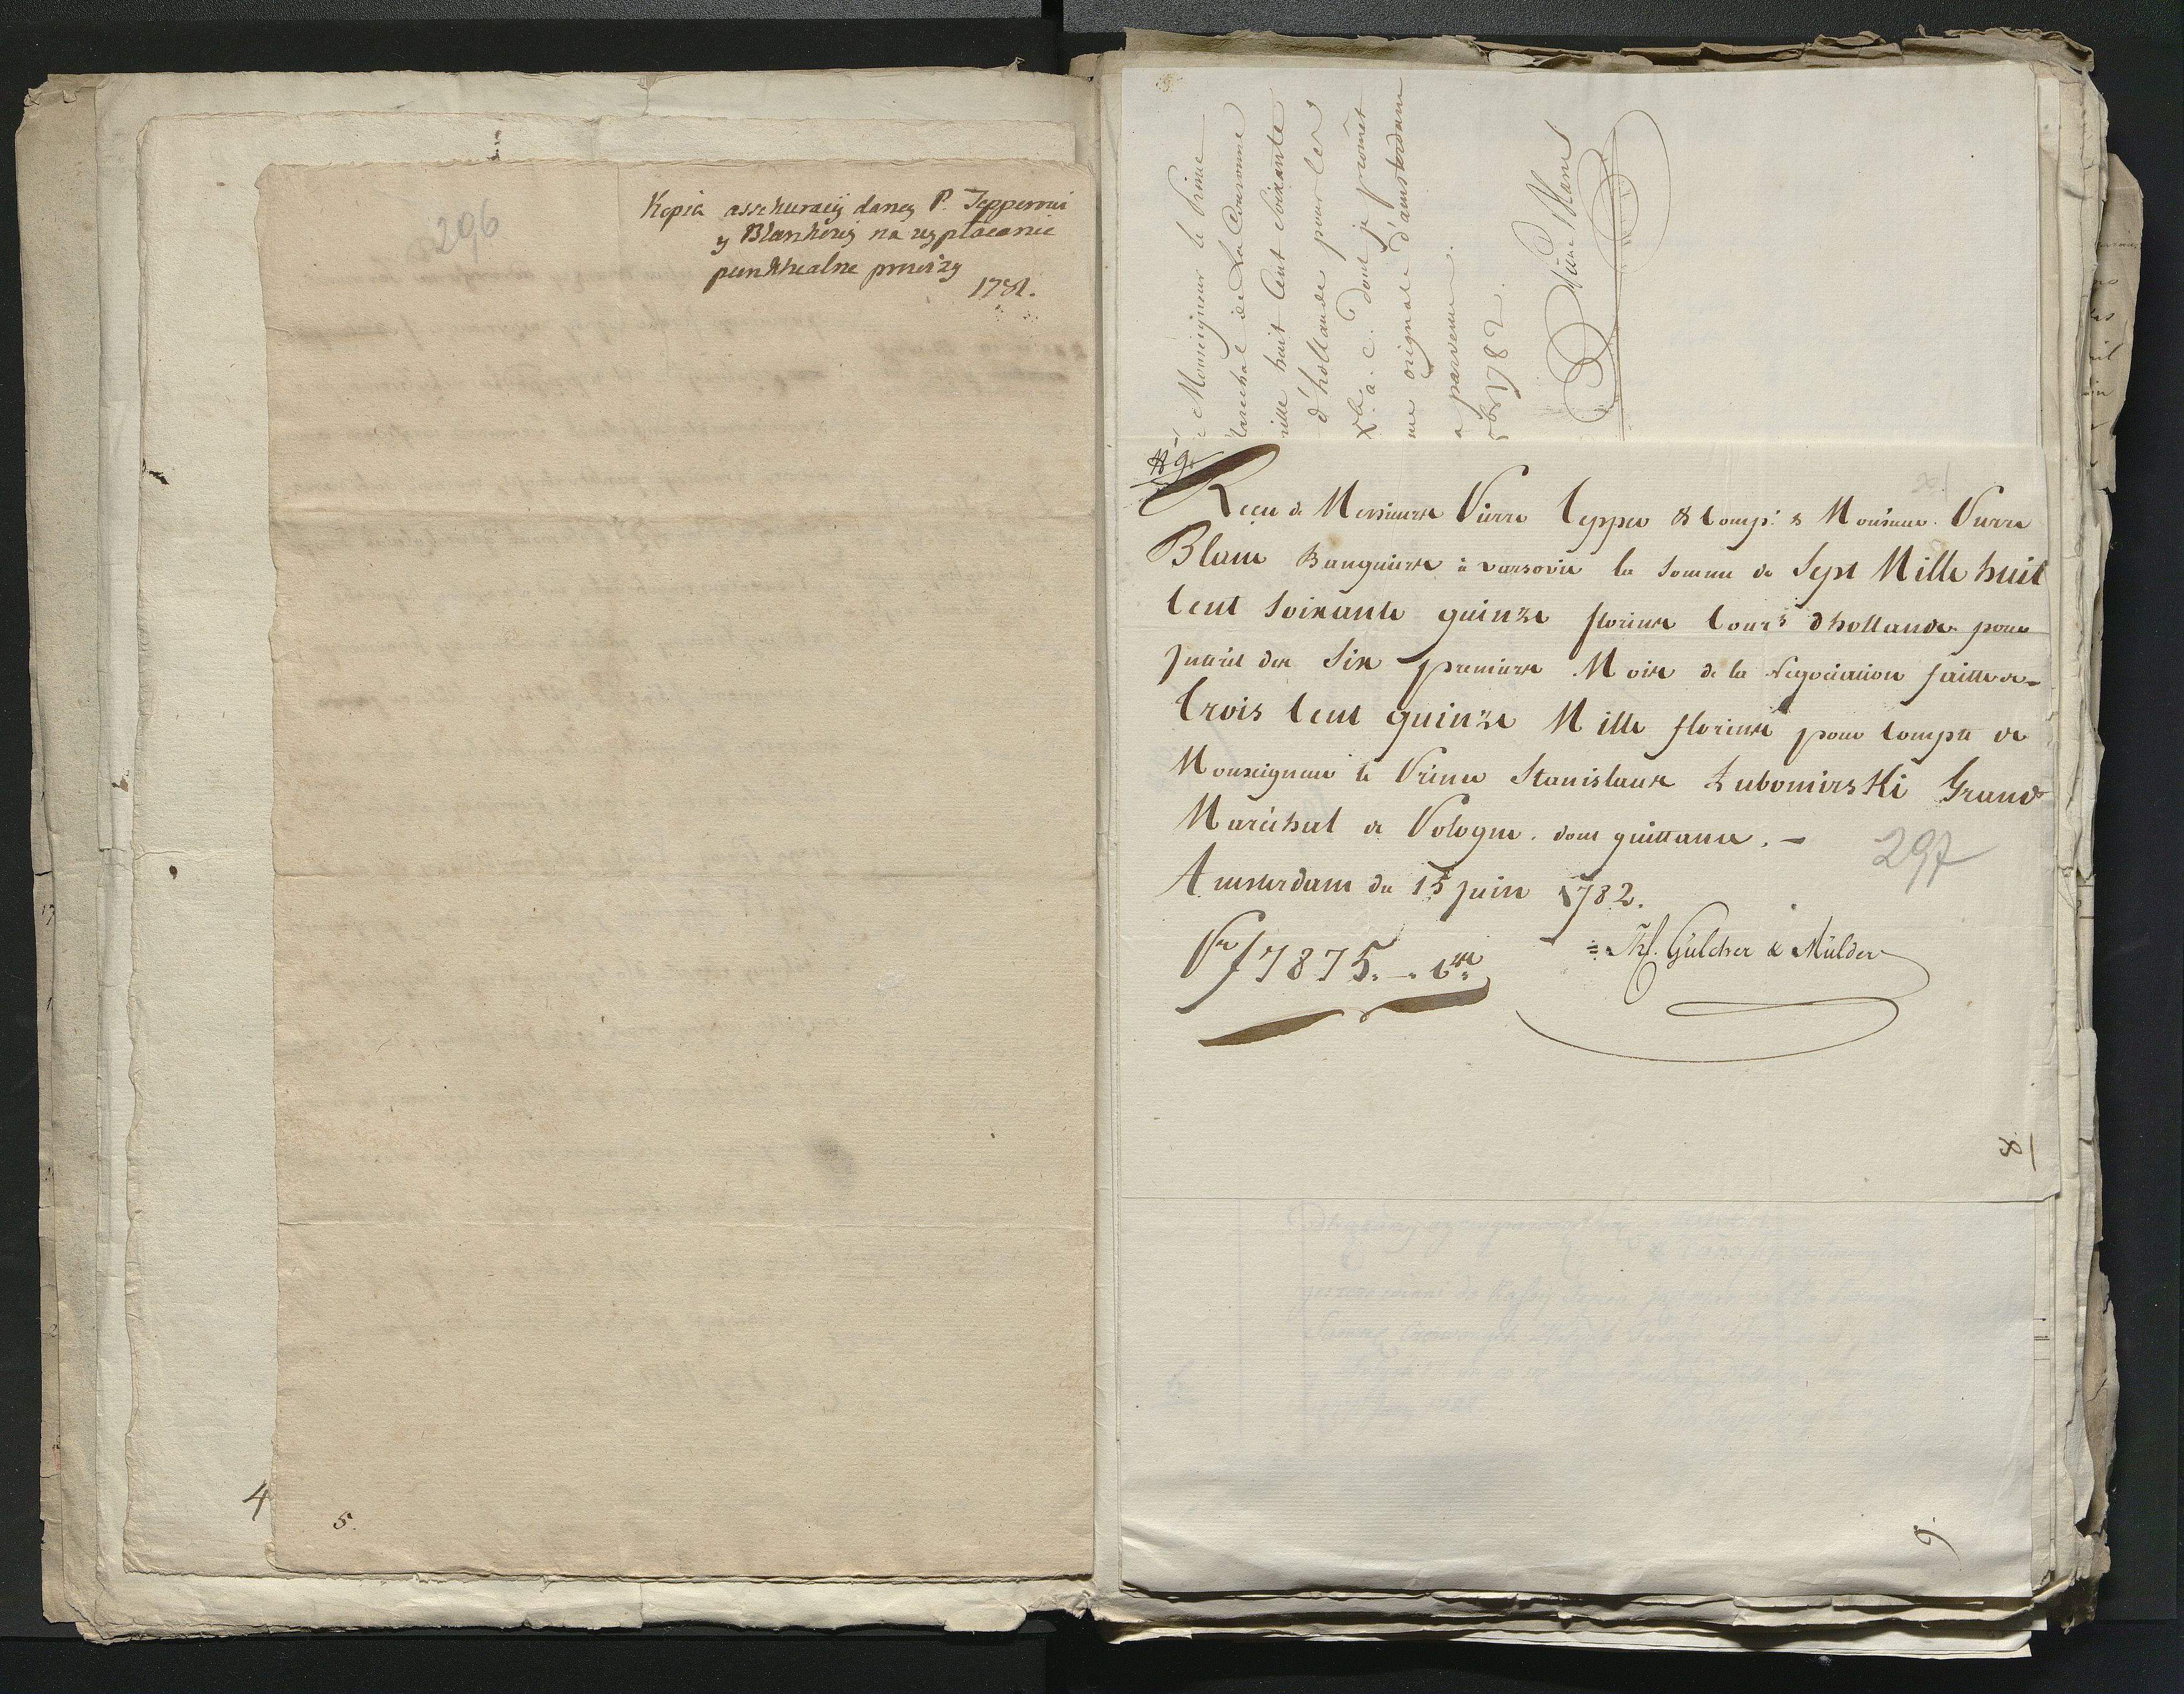 296
Kopia assekuracij daney P. Tepperowi
y Blankowi na wypłacenie
punktualne prowizy
1781.
4
5.
Monseigneur le Prince
Marechal de La Couronne
mille huit Cent Soixante
d'hollande pour les
a. c. dont je promêt
original d'amsterdam
a parvenu.
1782.
Pierre Blanc
№ 9.
Reçu de Messieurs Pierre Tepper & Comp: & Monsieur Pierre
Blanc Banquiers à varsovie la Somme de Sept Mille huit
Cent Soixante quinze florins Cours d'hollande pour
Interêt des Six premiers Mois de la Negociation faitte de
Trois Cent quinze Mille florins pour Compte de
Monseigneur le Prince Stanislaus Lubomirski Grand
Maréchal de Pologne. dont quittance. –
Amsterdam du 15 Juin 1782.
297
Pr f 7875. –. Cts
Th. Gülcher & Mülder
8
9.